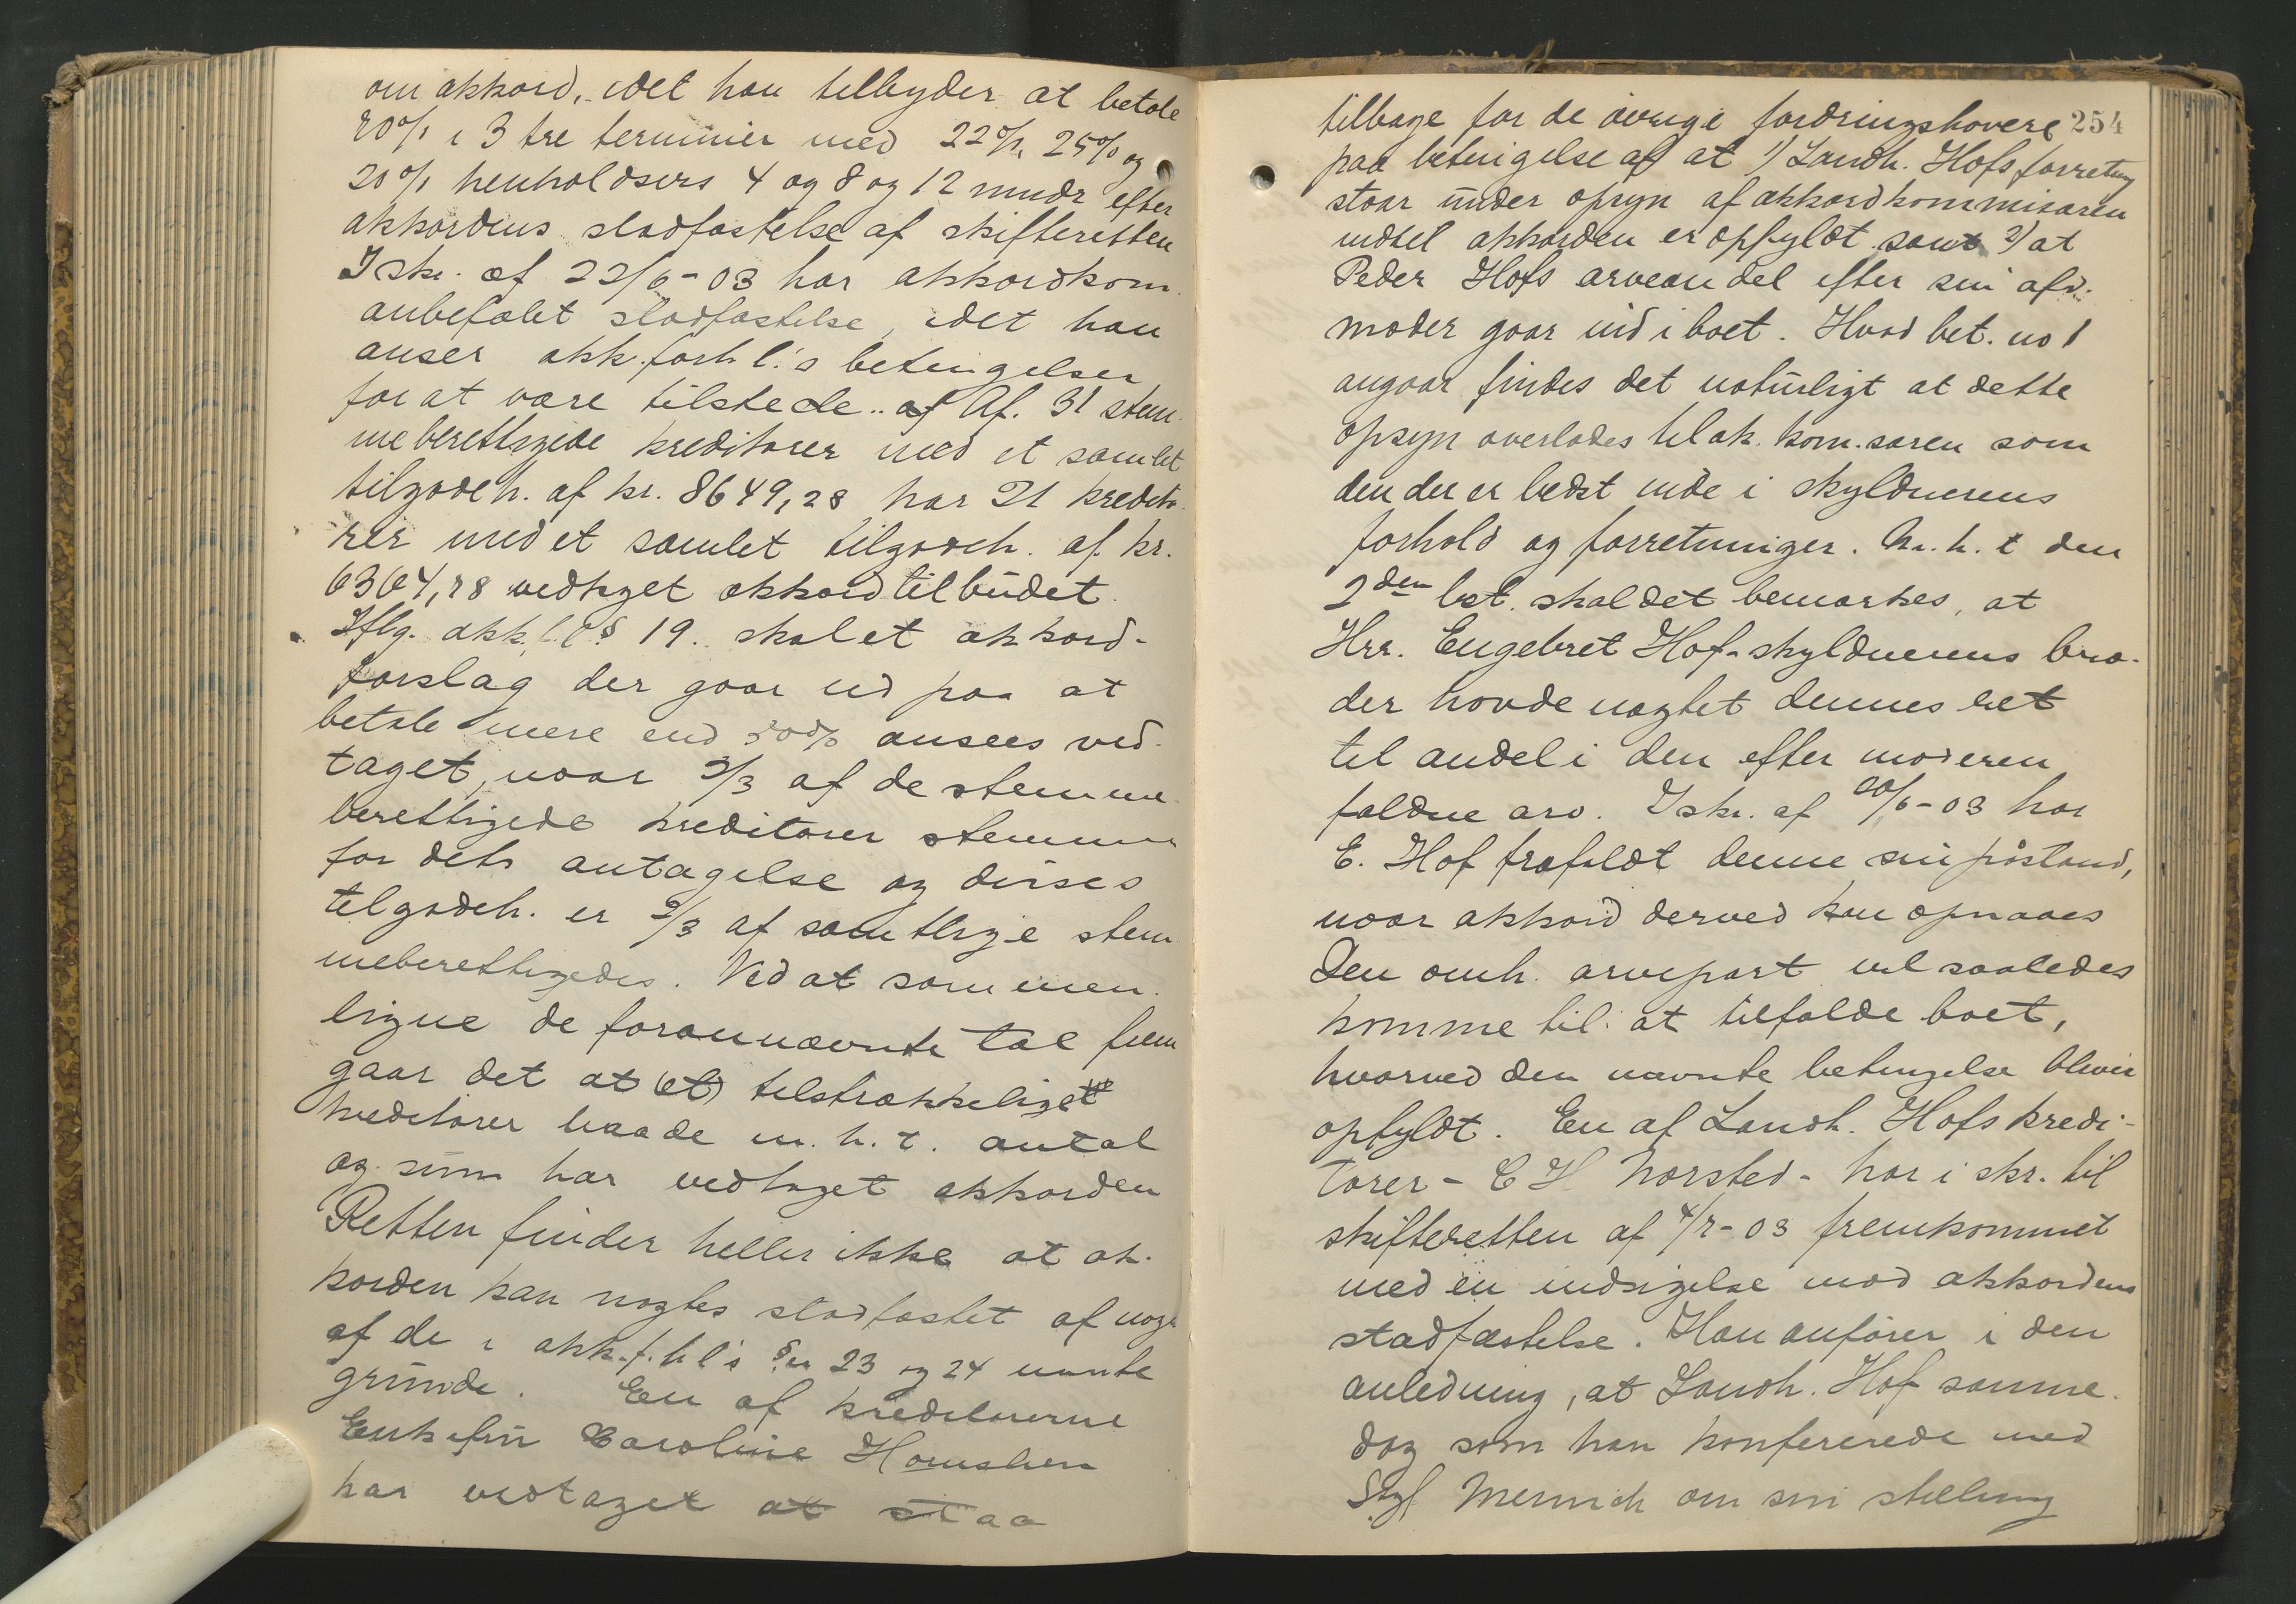 om akkord, idet han tilbyder at betale
70% i 3 tre terminer med 22%, 25% og
20% henholdsvis 4 og 8 og 12 mndr efter
akkordens stadfæstelse af skifteretten
I skr. af 22/6-03 har akkordkom.
anbefalet stadfæstelse, idet han
anser akk.forh.l.'s betingelser
for at være tilstede.. af Af. 31 stem-
meberettigede kreditorer med et samlet
tilgodeh. af kr. 8649,28 har 21 kredito-
rer med et samlet tilgodeh. af kr.
6364,78 vedtaget akkordtilbudet.
Iflg. akk.l. § 19. skal et akkord-
forslag der gaar ud paa at
betale mere end 50% ansees ved-
taget, naar 2/3 af de stemme-
berettigede kreditorer stemmer
for dets antagelse og disses
tilgodeh. er 2/3 af samtlige stem-
meberettigedes. Ved at sammen-
ligne de forannævnte tal frem
gaar det at (et) tilstrækkeligt
kreditorer baade m. h. t. antal
og sum har vedtaget akkorden
Retten finder heller ikke at ak-
korden kan nægtes stadfæstet af nogen
af de i akk.f.h.l's §er 23 og 24 nævnte
grunde. En af kreditorerne
Enkefru Caroline
har vedtaget at staa
tilbage for de øvrige fordringshavere 254
paa betingelse af at 1) Landh. Hofs forretning
staar under opsyn af akkordkommisæren
indtil akkorden er opfyldt samt 2) at
Peder Hofs arveandel efter sin afd.
moder gaar ind i boet. Hvad bet. no 1
angaar findes det naturligt at dette
opsyn overlades til ak. kom.saren som
den der er bedst inde i skyldnerens
forhold og forretninger. M. h. t den
2den bet. skal det bemærkes, at
Hrr. Engebret Hof - skyldnerens bro-
der havde nægtet dennes ret
til andel i den efter moderen
faldne arv. I skr. af 20/6-03 har
E. Hof frafaldt denne sin påstand,
naar akkord derved kan opnaaes
Den omh. arvepart vil saaledes
komme til at tilfalde boet,
hvorved den nævnte betingelse bliver
opfyldt. En af Landh. Hofs kredi-
torer - C H Norsted - har i skr. til
skifteretten af 4/7-03 fremkommet
med en indsigelse mod akkordens
stadfæstelse. Han anfører i den
anledning, at Landh. Hof samme
dag som han konfererede med
Sagf. Mennich om sin stilling